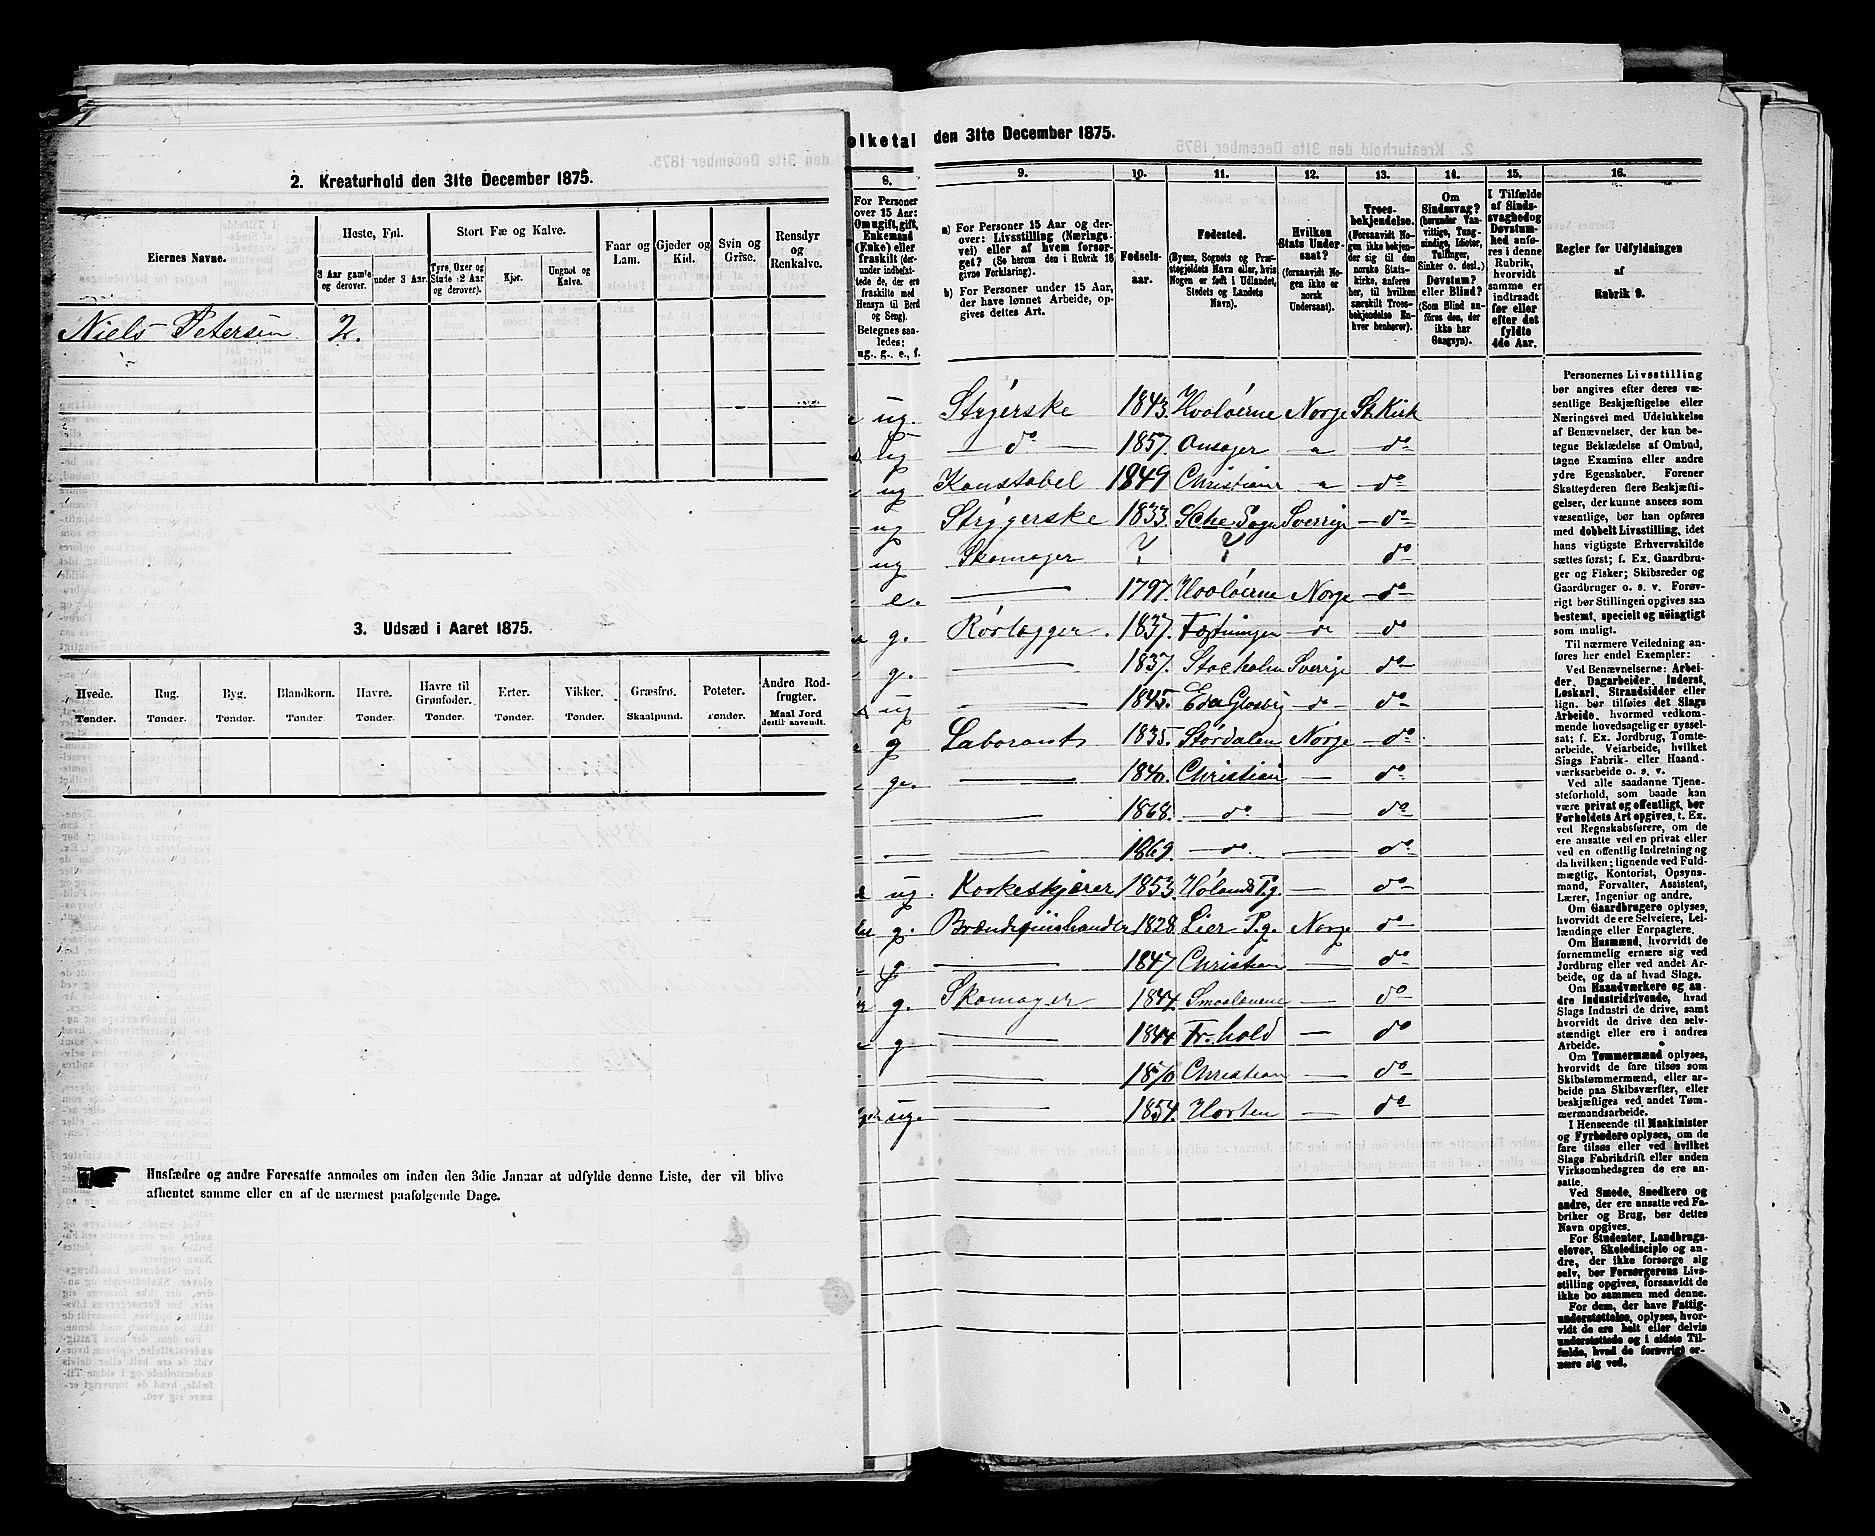 2. Kreaturhold den 31te December 1875.
Eiernes Navne.
Heste, Føl.
3 Aar gamle og derover.
under 3 Aar.
Stort Fæ og Kalve.
Tyre, Oxer og Stude (2 Aar og derover).
Kjør.
Ungnøt og Kalve.
Faar og Lam.
Gjeder og Kid.
Svin og Grise.
Rensdyr og Renkalve.
Niels Petersen 2.
3. Udsæd i Aaret 1875.
Hvede. Rug. Byg. Blandkorn. Havre. Havre til Grønfoder. Erter. Vikker. Græsfrø. Poteter. Andre Rodfrugter.
Tønder. Tønder. Tønder. Tønder. Tønder. Tønder. Tønder. Tønder. Skaalpund. Tønder. Maal Jord dertil anvendt.
Husfædre og andre Foresatte anmodes om inden den 3die Januar at udfylde denne Liste, der vil blive
afhentet samme eller en af de nærmest paafølgende Dage.
olketal den 31te December 1875.
8. 9. 10. 11. 12. 13. 14. 15. 16.
For Personer
over 15 Aar:
Om ugift, gift,
Enkemand
(Enke) eller
fraskilt (derunder
indbefattede
de, der ere
fraskilte med
Hensyn til Bord
og Seng).
Betegnes saaledes:
ug., g., e., f.
a) For Personer 15 Aar og derover: Livsstilling (Næringsvei) eller af hvem forsørget? (Se herom den i Rubrik 16 givne Forklaring).
b) For Personer under 15 Aar, der have lønnet Arbeide, opgives dettes Art.
Fødselsaar.
Fødested.
(Byens, Sognets og Præstegjeldets Navn eller, hvis Nogen er født i Udlandet, Stedets og Landets Navn).
Hvilken Stats Undersaat?
(forsaavidt Nogen ikke er norsk Undersaat).
Troesbekjendelse.
(Forsaavidt Nogen ikke bekjender sig til den norske Statskirke, anføres her, til hvilken særskilt Troesbekjendelse Enhver henhører).
Om Sindssvag?
(herunder Vanvittige, Tungsindige, Idioter, Tullinger, Sinker o. desl.)
Døvstum?
eller Blind?
(Som Blind anføres den, der ikke har Gangsyn).
I Tilfælde af Sindssvaghed og Døvstumhed anføres i denne Rubrik, hvorvidt samme er indtraadt før eller efter det fyldte 4de Aar.
Regler for Udfyldningen
af
Rubrik 9.
ug. Strÿerske 1843. Hvaløerne Norge St. Kirk
ug do 1857. Onsøger do
ug Konstabel 1849 Christian do
ug Strÿgerske 1833. Sogn Sverrige do
ug Skomager ? ? do
e. 1797. Hvaløerne Norge do
g. Rørlægger. 1837. Fæstningen do do
g. 1837. Stocholm Sverrige do
ug 1845. Eda Glasbrg do do
g Laborant 1835. Stordalen Norge do
g. 1840. Christian do
1868. do do
1869. do. do
ug. Korkeskjærer 1853. Hølands P.g. do
g. Brændeviinshandler 1828. Lier P.g. Norge do
g 1847 Christian do
g. Skomager 1844. Smaalenene do
g 1844 Fr.hald do
1870 Christian do
ug. 1854. Horten do
Personernes Livsstilling
bør angives efter deres væsentlige
Beskjæftigelse eller
Næringsvei med Udelukkelse
af Benævnelser, der kun betegne
Beklædelse af Ombud,
tagne Examina eller andre
ydre Egenskaber. Forener
Skatteyderen flere Beskjæftigelser,
der kunne ansees som
væsentlige, bør han opføres
med dobbelt Livsstilling, idet
hans vigtigste Erhvervskilde
sættes først; f. Ex. Gaardbruger
og Fisker; Skibsreder og
Gaardbruger o. s. v. Forøvrigt
bør Stillingen opgives saa
bestemt, specielt og nøiagtigt
som muligt.
Til nærmere Veiledning anføres
her endel Exempler:
Ved Benævnelserne: Arbeider,
Dagarbeider, Inderst,
Løskarl, Strandsidder eller
lign. bør tilføies det Slags
Arbeide, hvormed vedkommende
hovedsagelig er sysselsat;
f. Ex. Jordbrug, Tomtearbeide,
Veiarbeide, hvilket
Slags Fabrik- eller Haandværksarbeide
o. s. v.
Ved alle saadanne Tjenesteforhold,
som baade kan
være privat og offentligt, bør
Forholdets Art opgives, t. Ex.
ved Regnskabsførere, om de
ere ansatte ved en privat eller
ved en offentlig Indretning og
da hvilken; lignende ved Fuldmægtig,
Kontorist, Opsynsmand,
Forvalter, Assistent,
Lærer, Ingeniør og andre.
Om Gaardbrugere oplyses,
hvorvidt de ere Selveiere, Leilændinge
eller Forpagtere.
Om Husmænd, hvorvidt de
fornemmelig ernære sig ved
Jordbrug eller ved andet Arbeide,
og da af hvad Slags.
Om Haandværkere og andre
Industridrivende, hvad
Slags Industri de drive, samt
hvorvidt de drive den selvstændigt
eller ere i andres
Arbeide.
Om Tømmermænd oplyses,
hvorvidt de fare tilsøs som
Skibstømmermænd, eller arbeide
paa Skibsværfter, eller
beskjæftiges ved andet Tømmermandsarbeide.
I Henseende til Maskinister
og Fyrbødere oplyses, om de
fare tilsøs eller ved hvilket
Slags Fabrikdrift eller anden
Virksomhedsgren de ere ansatte.
Ved Smede, Snedkere og
andre, der ere ansatte ved Fabriker
og Brug, bør dettes
Navn opgives.
For Studenter, Landbrugselever,
Skoledisciple og andre,
der ikke forsørge sig
selv, bør Forsørgerens Livsstilling
opgives, forsaavidt de
ikke bo sammen med denne.
For dem, der have Fattigunderstøttelse,
oplyses, hvorvidt
de ere helt eller delvis
understøttede og i sidste Tilfælde,
hvad de forøvrigt ernære
sig ved.